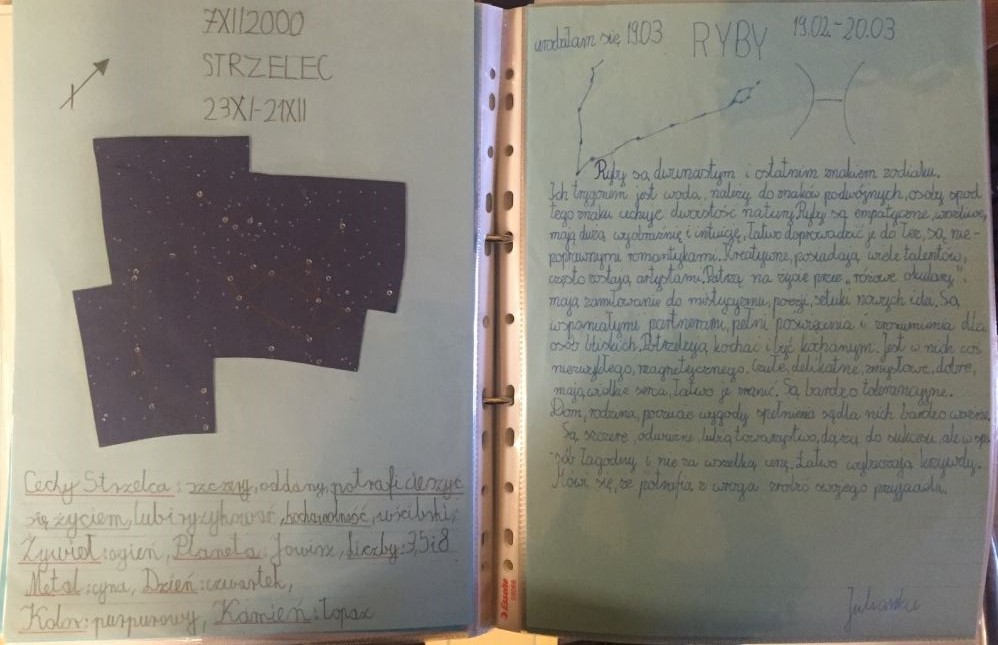 7XII2000
STRZELEC
23XI-21XII
Cechy Strzelca: szczery, oddany, potrafi cieszyć
się życiem, lubi ryzykować, wścibski,
Żywioł: ogień, Planeta: Jowisz, Liczby: 3,5i8
Metal: cyna, Dzień: czwartek,
Kolor: purpurowy, Kamień: topaz
Esselte
urodziłam się 19.03 RYBY 19.02.-20.03
Ryby są dwunastym i ostatnim znakiem zodiaku.
Ich trygonem jest woda, należy do znaków podwójnych, osoby spod
tego znaku cechuje dwoistość natury. Ryby są empatyczne, wrażliwe,
mają dużą wyobraźnię i intuicję, łatwo doprowadzić je do łez, są nie-
poprawnymi romantykami. Kreatywne, posiadają wiele talentów,
często zostają artystami. Patrzą na życie przez „różowe okulary",
mają zamiłowanie do mistycyzmu, poezji, sztuki nowych idei. Są
wspaniałymi partnerami, pełni poświęcenia i zrozumienia dla
osób bliskich. Potrzebują kochać i być kochanym. Jest w nich coś
niezwykłego, magnetycznego. Czułe, delikatne, zmysłowe, dobre,
mają wielkie serca, łatwo je zranić. Są bardzo tolerancyjne.
Dom, rodzina, poczucie wygody spełnienia są dla nich bardzo ważne.
Są szczere, odważne, lubią towarzystwo, dążą do sukcesu, ale w spo
sób łagodny i nie za wszelką cenę. Łatwo wybaczają krzywdy.
Mówi się, że potrafią z wroga zrobić swojego przyjaciela.